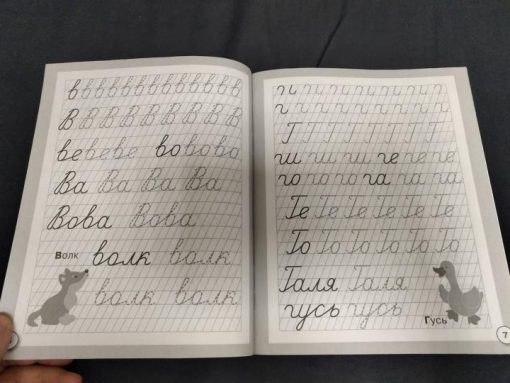 в в в в в в в в в в в в в
В В В В В В В В В
ве ве ве во во во
Ва Ва Ва Ва
Вова Вова
Волк волк волк
волк волк
г г г г г г г г г
Г Г Г Г Г Г Г Г
ги ги ги ге ге ге
го го го га га га
Ге Ге Ге Ге Ге
Го Го Го Го Го
Галя Галя
гусь гусь Гусь
7